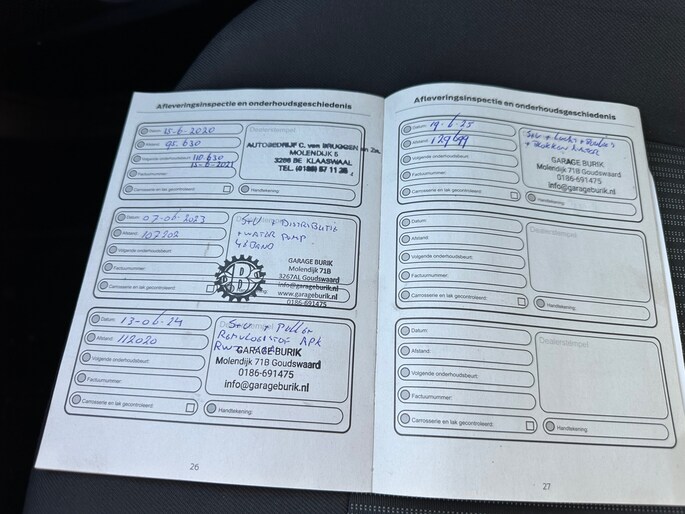 Afleveringsinspectie en onderhoudsgeschiedenis
Datum: 15-6-2020
Afstand: 95.630
Volgende onderhoudsbeurt: 110.630
15-6-2021
Factuurnummer:
Carrosserie en lak gecontroleerd:
Dealerstempel
AUTOBEDRIJF C. van BRUGGEN en Zn.
MOLENDIJK 5
3286 BE KLAASWAAL
TEL. (0186) 57 11 28
Handtekening:
Datum: 07-06-2023
Afstand: 107202
Volgende onderhoudsbeurt:
Factuurnummer:
Carrosserie en lak gecontroleerd:
+ DISTRIBUTIE
+ WATER POMP
GARAGE BURIK
Molendijk 71B
3267AL Goudswaard
info@garageburik.nl
www.garageburik.nl
Handtekening:
Datum: 13-06-24
Afstand: 112020
Volgende onderhoudsbeurt:
Factuurnummer:
Carrosserie en lak gecontroleerd:
REMVLOEISTOF APK
GARAGE BURIK
Molendijk 71B Goudswaard
0186-691475
info@garageburik.nl
Handtekening:
26
Afleveringsinspectie en onderhoudsgeschiedenis
Datum: 19-6-25
Afstand:
Volgende onderhoudsbeurt:
Factuurnummer:
Carrosserie en lak gecontroleerd:
GARAGE BURIK
Molendijk 71B Goudswaard
0186-691475
info@garageburik.nl
Handtekening:
Datum:
Afstand:
Volgende onderhoudsbeurt:
Factuurnummer:
Carrosserie en lak gecontroleerd:
Dealerstempel
Handtekening:
Datum:
Afstand:
Volgende onderhoudsbeurt:
Factuurnummer:
Carrosserie en lak gecontroleerd:
Dealerstempel
Handtekening:
27